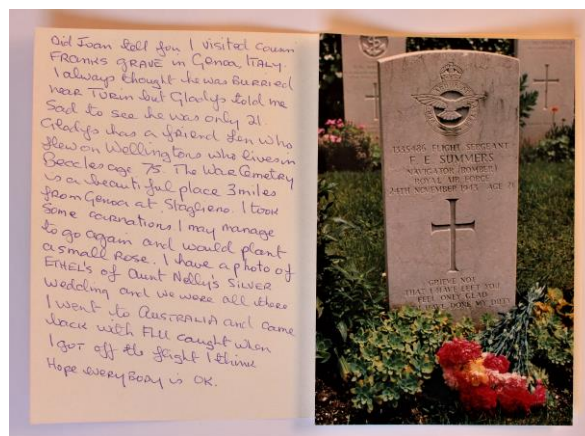 Did Joan tell you I visited cousin
FRANKS GRAVE in Genoa, ITALY.
I always thought he was BURRIED
near TURIN but Gladys told me
Sad to see he was only 21.
Gladys has a friend Len who
flew on Wellingtons who lives in
Beccles age 75. The War Cemetery
is a beautiful place 3 miles
from Genoa at Staglieno. I took
some carnations I may manage
to go again and would plant
a small Rose. I have a photo of
ETHEL'S of Aunt Nelly's SILVER
wedding and we were all there
I went to AUSTRALIA and came
back with FLU caught when
I got off the flight I think
Hope everyBody is OK.
1335486 FLIGHT SERGEANT
F. E. SUMMERS
NAVIGATOR (BOMBER)
ROYAL AIR FORCE
24TH NOVEMBER 1943 AGE 21
GRIEVE NOT
THAT I HAVE LEFT YOU
FEEL ONLY GLAD
I HAVE DONE MY DUTY